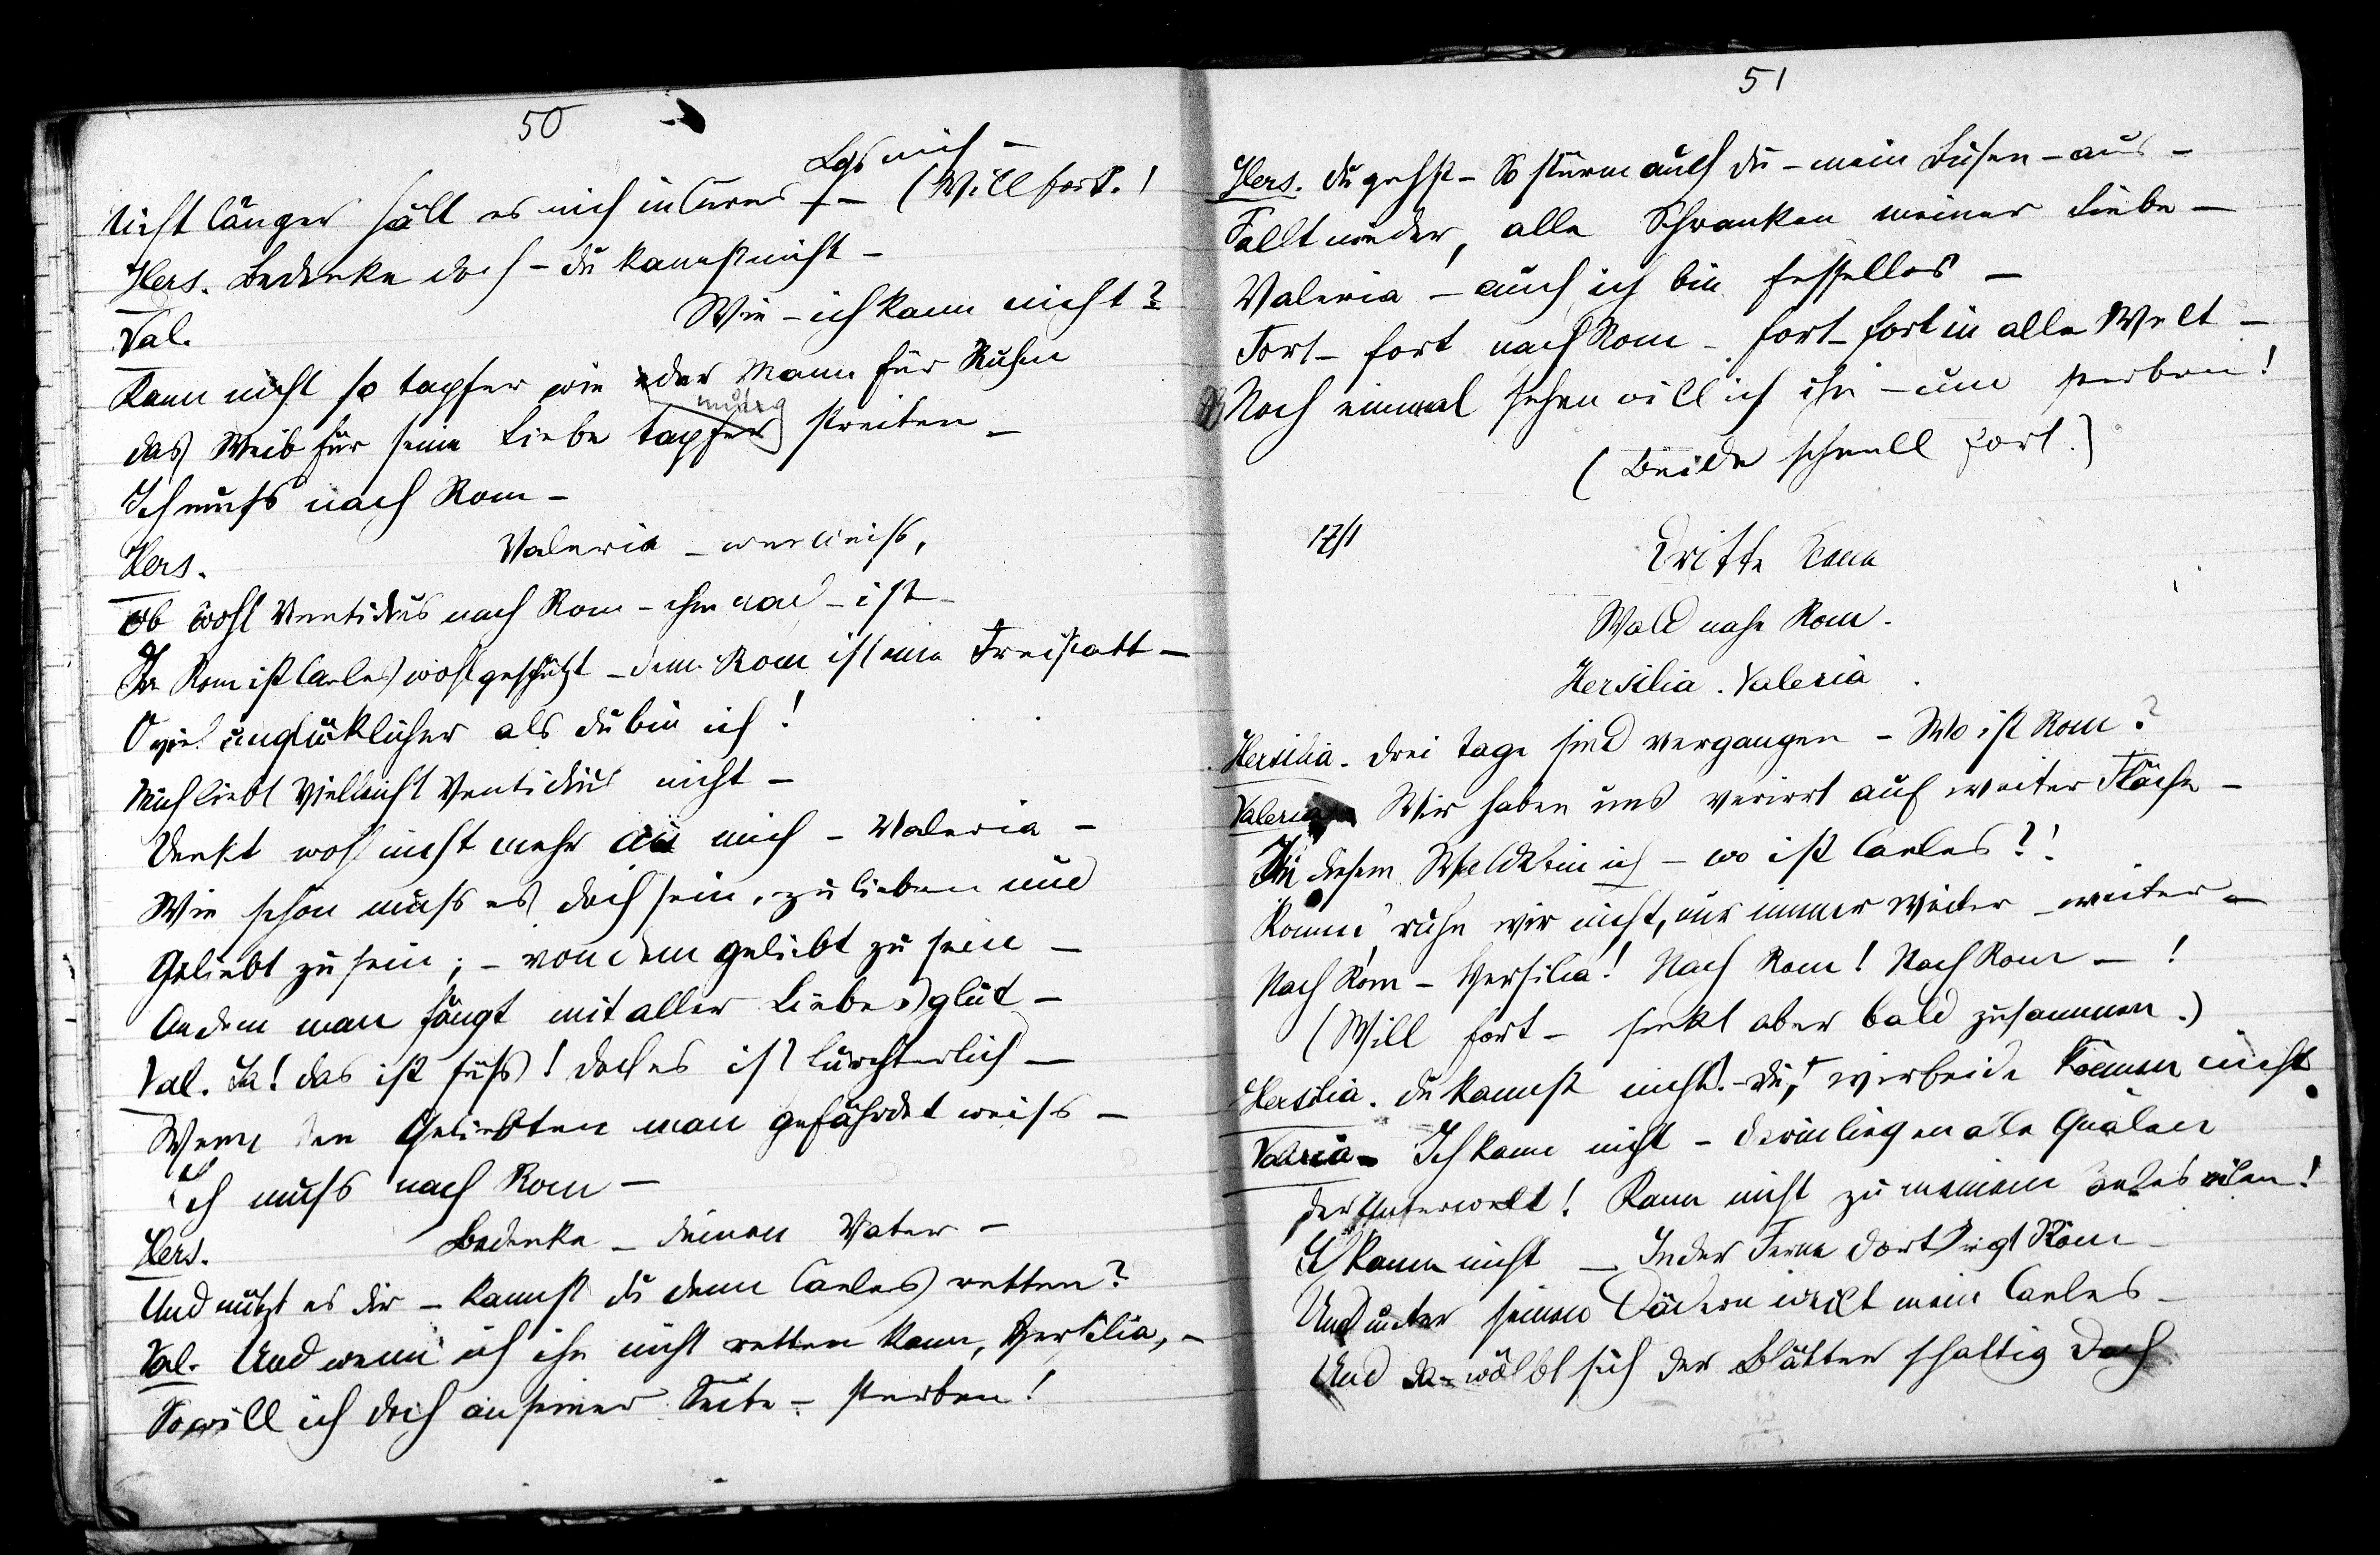 50
Laß mich –
Nicht länger hält es mich in Caere – – (Will fort.)
Hers. Bedenke doch – du kannst nicht –
Val. Wie – ich kann nicht?
Kann nicht so tapfer wie der Mann für Ruhm
mutig
das Weib für seine Liebe tapfer streiten –
Ich muß nach Rom –
Hers. Valeria – wer weiß,
Ob wohl Ventidius nach Rom – ist –
In Rom ist Caeles wohl geschützt – denn Rom ist eine Freistatt –
O viel unglücklicher als du bin ich!
Mich liebt vielleicht Ventidius nicht –
Denkt wohl nicht mehr an mich – Valeria –
Wie schön muß es doch sein, zu lieben und
Geliebt zu sein; – von dem geliebt zu sein –
An dem man hängt mit aller Liebesglut –
Val. Ja! das ist süß! doch es ist fürchterlich –
Wenn den Geliebten man gefährdet weiß –
Ich muß nach Rom –
Hers. Bedenke – deinen Vater –
Und nützt es dir – kannst du denn Caeles retten?
Val. Und wenn ich ihn nicht retten kann, Hersilia, –
So will ich doch an seiner Seite – sterben!
51
Hers. du gehst – So stürm auch du – mein Busen – aus –
Fallt nieder, alle Schranken meiner Liebe –
Valeria – auch ich bin fessellos –
Fort – fort nach Rom – fort – fort in alle Welt –
Noch einmal sehen will ich ihn – um sterben!
(Beide schnell fort.)
17/1
Dritte Scene
Wald nahe Rom.
Hersilia. Valeria.
Hersilia. drei Tage sind vergangen – Wo ist Rom?
Valeria Wir haben uns verirrt auf weiter Fläche –
In diesem Walde bin ich – wo ist Caeles?!
Komm' ruhn wir nicht, nur immer weiter – weiter –
Nach Rom – Hersilia! Nach Rom! Nach Rom – !
(Will fort – sinkt aber bald zusammen.)
Hersilia. du kannst nicht. – du, wir beide können nicht
Valeria – Ich kann nicht – darin liegen alle Qualen
der Unterwelt! Kann nicht zu meinem Caeles eilen!
Ich kann nicht – In der Ferne dort liegt Rom –
Und unter seinen Dächern weilt mein Caeles –
Und da – wölbt sich der Blätter schattig Dach